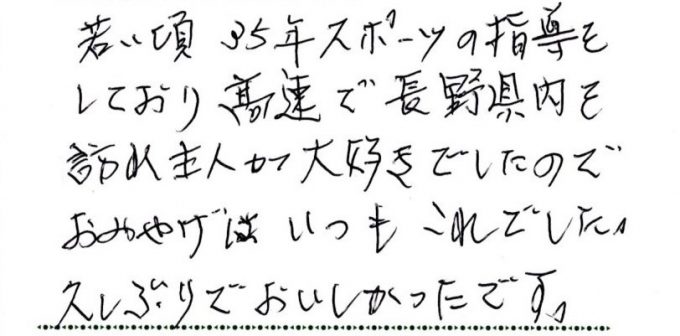 若い頃 35年スポーツの指導を
しており高速で長野県内を
訪れ主人が大好きでしたので
おみやげはいつもこれでした。
久しぶりでおいしかったです。